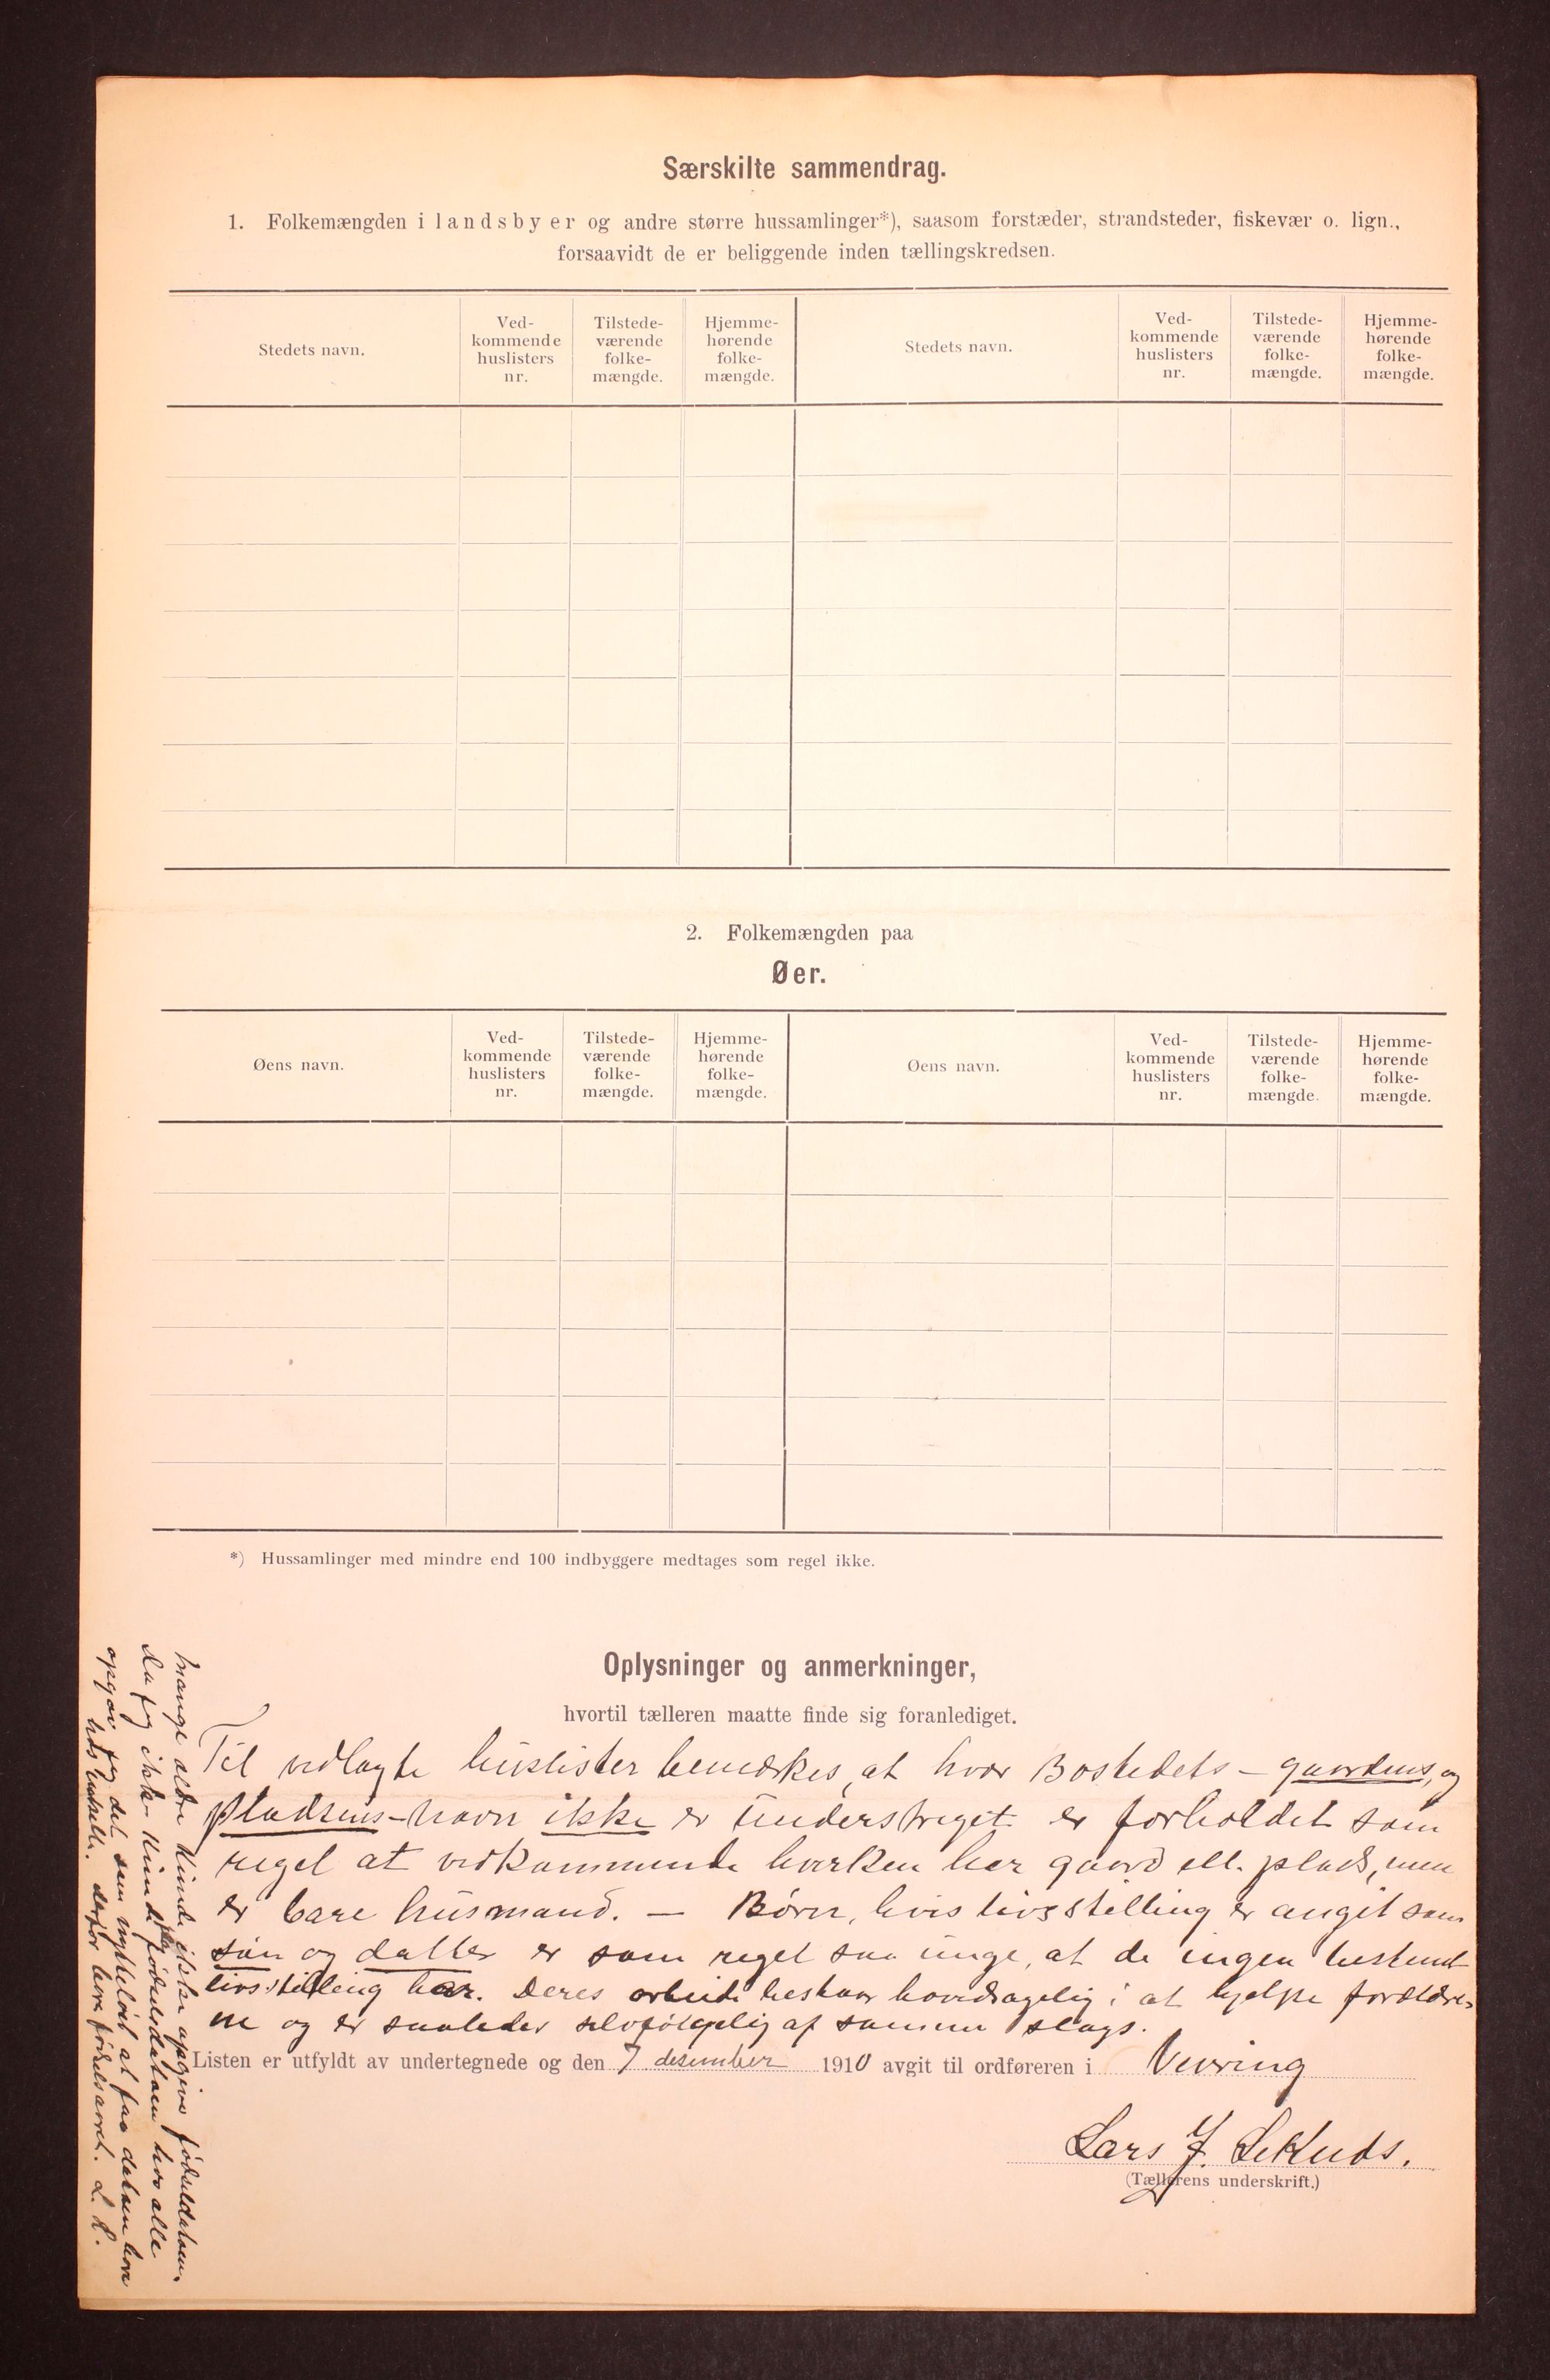 Særskilte sammendrag.
1. Folkemængden i landsbyer og andre større hussamlinger*), saasom forstæder, strandsteder, fiskevær o. lign.,
forsaavidt de er beliggende inden tællingskredsen.
Stedets navn.
Ved-
kommende
huslisters
nr.
Tilstede-
værende
folke-
mængde.
Hjemme-
hørende
folke-
mængde.
Stedets navn.
Ved-
kommende
huslisters
nr.
Tilstede-
værende
folke-
mængde.
Hjemme-
hørende
folke-
mængde.
2. Folkemængden paa
Øer.
Øens navn.
Ved-
kommende
huslisters
nr.
Tilstede-
værende
folke-
mængde.
Hjemme-
hørende
folke-
mængde.
Øens navn.
Ved-
kommende
huslisters
nr.
Tilstede-
værende
folke-
mængde.
Hjemme-
hørende
folke-
mængde.
*) Hussamlinger med mindre end 100 indbyggere medtages som regel ikke.
Oplysninger og anmerkninger,
hvortil tælleren maatte finde sig foranlediget.
Til vedlagte huslister bemærkes, at hvor Bostedets – gaardens, og
pladsens – navn ikke er understreget er forholdet som
regel at vedkommende hverken har gaard ell. plads, men
er bare husmand. — Børn, hvis livsstilling er angit som
søn og datter er som regel saa unge, at de ingen bestemt
livsstilling har. Deres arbeide bestaar hovedsagelig i at hjelpe forældre-
ne og er saaledes selvfølgelig af samme slags.
Listen er utfyldt av undertegnede og den 7 desember 1910 avgit til ordføreren i Vevring
Lars J.
(Tællerens underskrift.)
Mange ældre kunde ikke opgive fødseldatoen,
da jeg ikke kunde faa fødselsdatoen hos alle
opgav jeg det som nytteløst at faa datoen hos
derfor bare fødselsaaret. L. L.